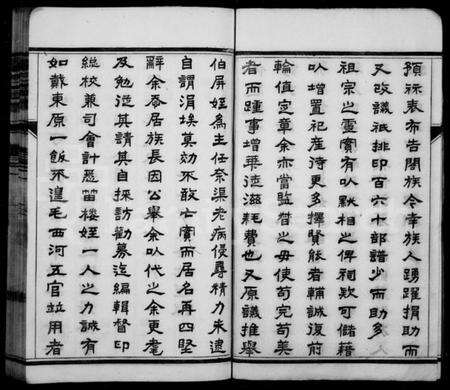 預祘表布告闔族令幸族人踴躍捐助而
又改議祇排印百六十部譜少而助多
祖宗之靈實有以默相之俾祠欵可儲藉
以增置祀産待更多擇賢能者輔誠復前
輪值定章余亦當監督之毋使苟完苟美
者而踵事增華徒滋耗費也又原議推舉
伯屏姪為主任奈渠老病侵尋精力未逮
自謂涓埃莫効不敢亡實而居名再四堅
辭余忝居族長因公舉余以代之余更耄
及勉從其請其自採訪勸募迄編輯督印
校兼司會計悉笛樓姪一人之力誠有
如戴東原一飯不遑毛西河五官並用者